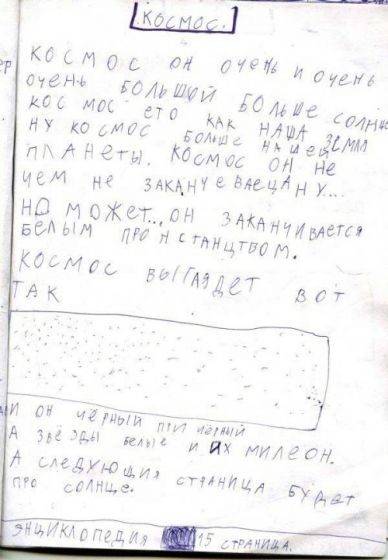 КОСМОС.
КОСМОС ОН ОЧЕНЬ И ОЧЕНЬ
ОЧЕНЬ БОЛЬШОЙ БОЛЬШЕ СОЛНЦЕ
КОСМОС ЕТО КАК НАША ЗЕМЛЯ
НУ КОСМОС БОЛЬШЕ НАШЕЙ
ПЛАНЕТЫ. КОСМОС ОН НЕ
ЧЕМ НЕ ЗАКАНЧЕВАЕЦА НУ...
НО МОЖЕТ... ОН ЗАКАНЧИВАЕТСЯ
БЕЛЫМ ПРОНСТАНЦТВОМ.
КОСМОС ВЫГЛЯДЕТ ВОТ
ТАК
И ОН ЧЁРНЫЙ ПРИ ЧЁРНЫЙ
А ЗВЁЗДЫ БЕЛЫЕ И ИХ МИЛЕОН.
А СЛЕДУЮЩИЯ СТРАНИЦА БУДЕТ
ПРО СОЛНЦЕ.
ЯНЦИКЛОПЕДИЯ 15 СТРАНИЦА.